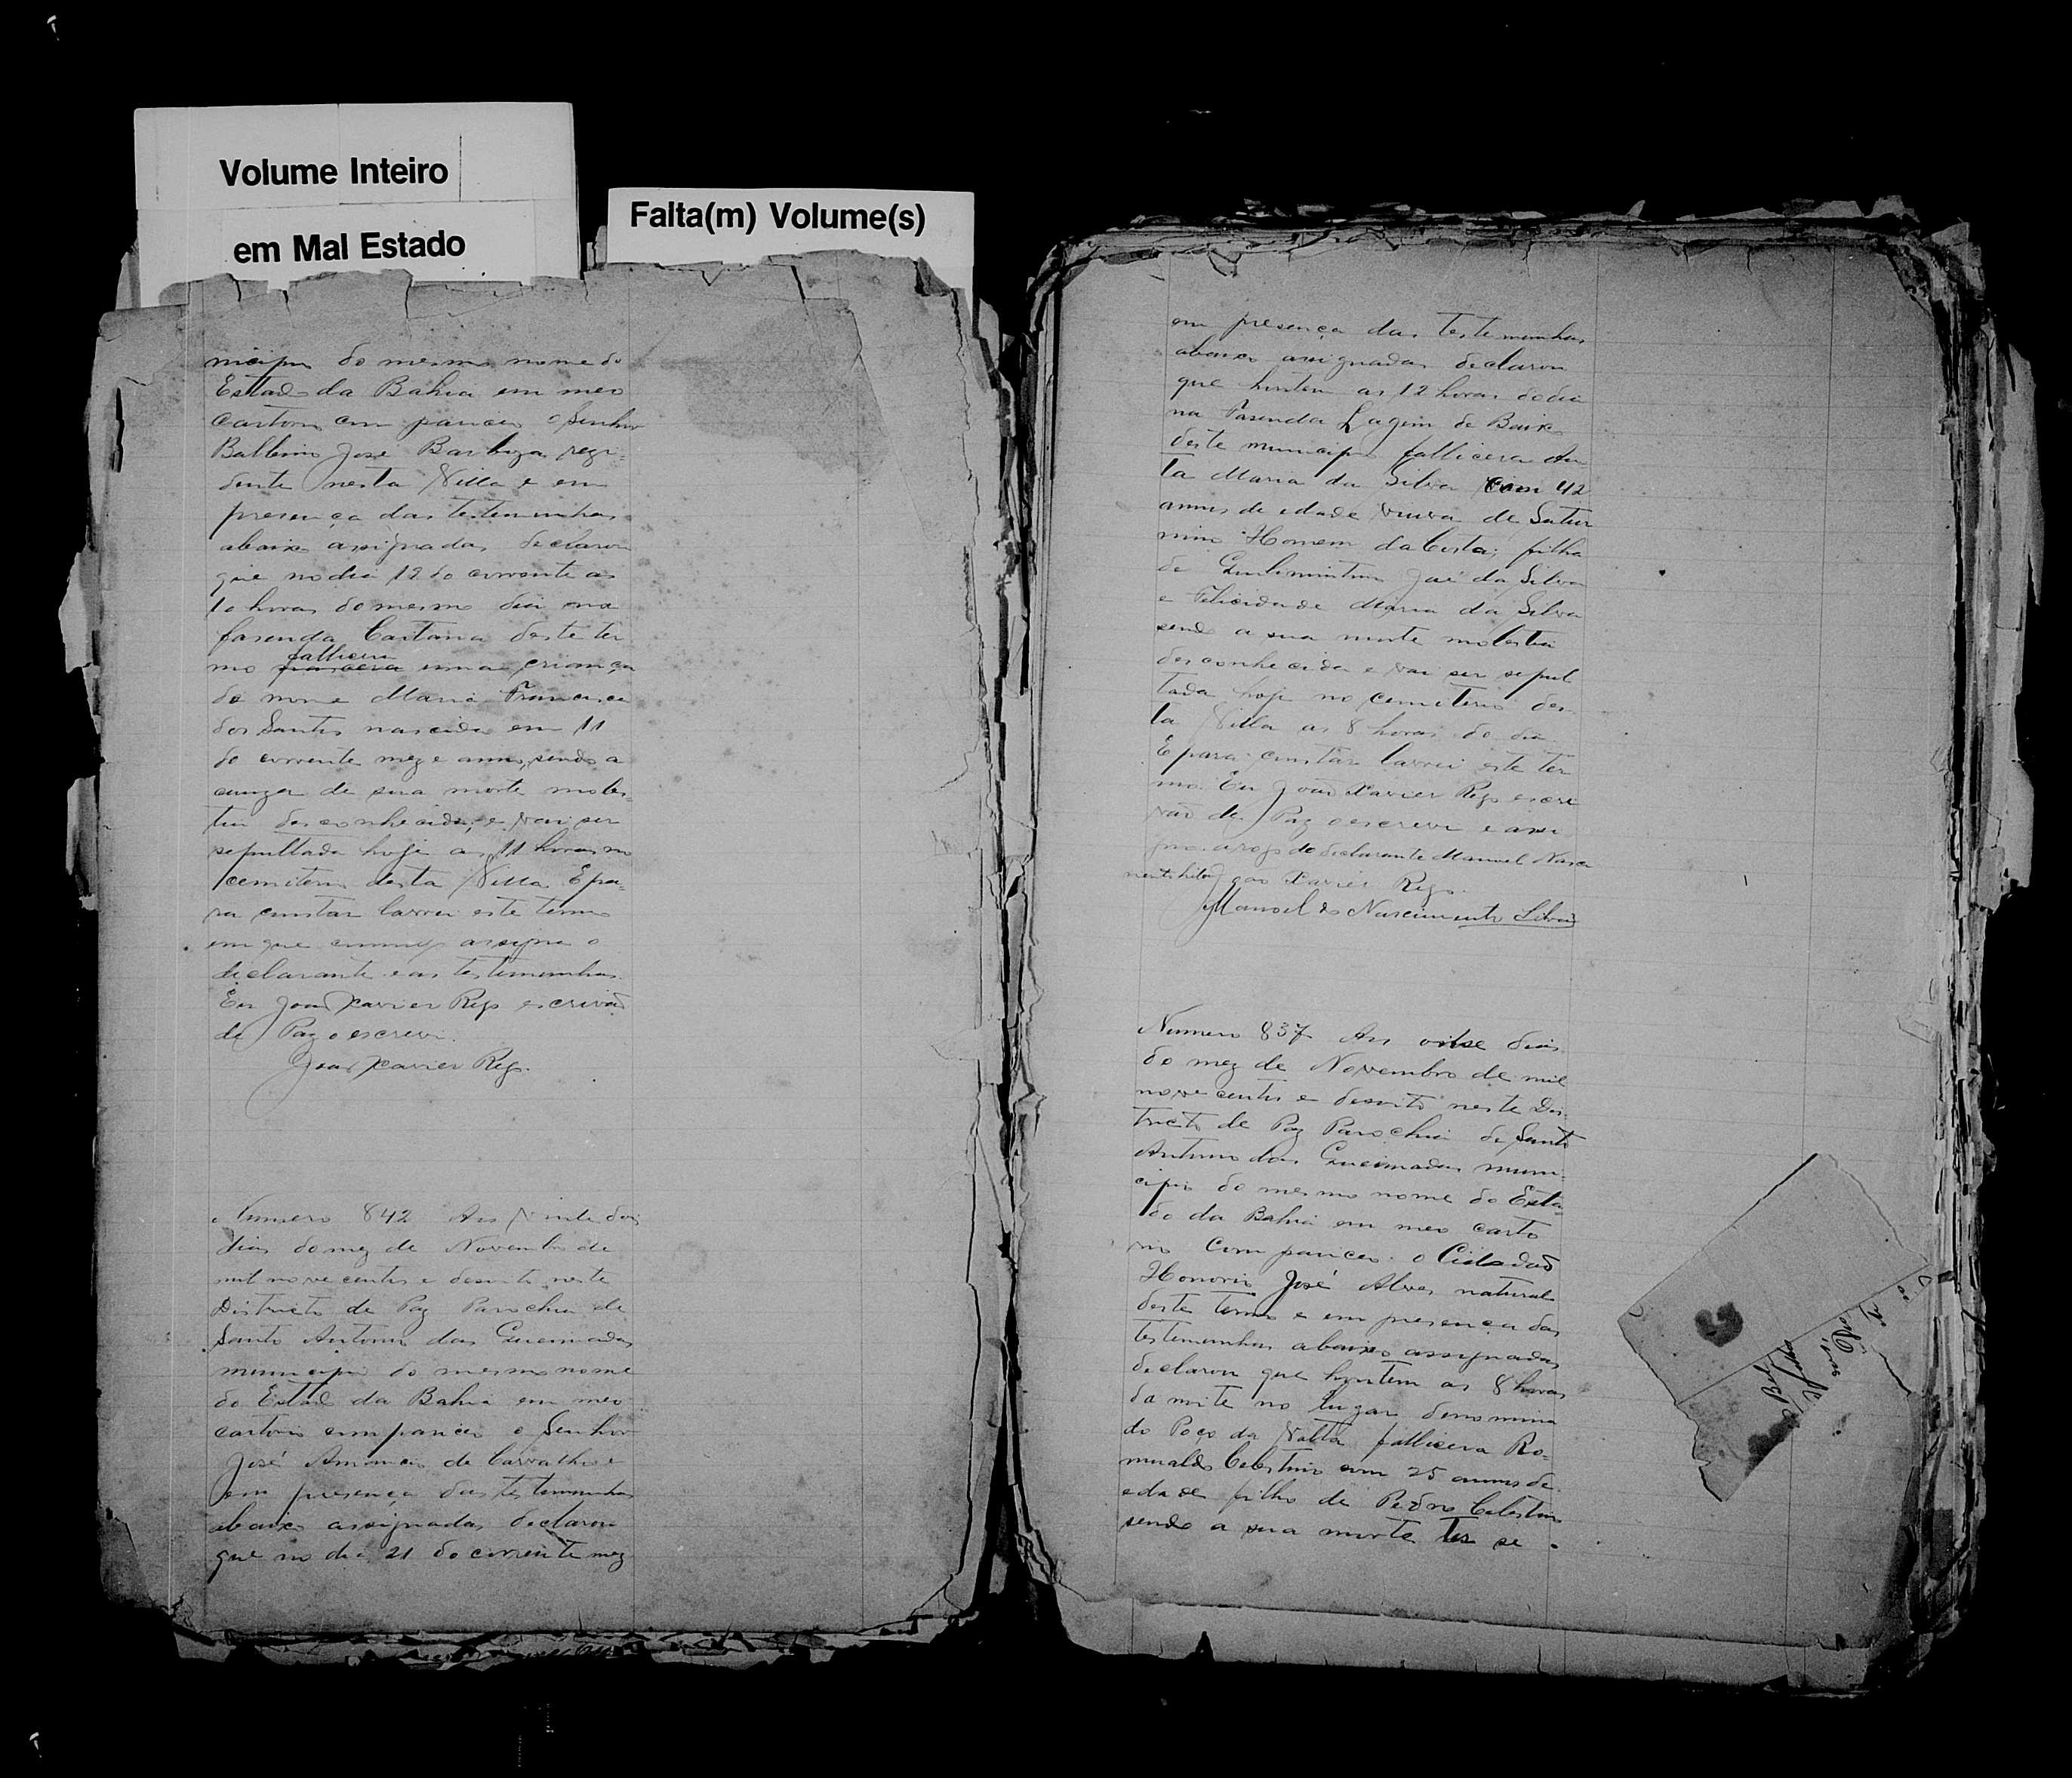 Volume Inteiro
em Mal Estado
Falta(m) Volume(s)
nicipio do mesmo nome do
Estado da Bahia em meo
cartorio com pareceo o Senhor
Balbino José Barboza rezi-
dente nesta Villa e em
presença das testemunhas
abaixo assignadas declarou
que no dia 12 do corrente as
10 horas do mesmo dia na
fasenda Caetana deste ter
mo nascera fallicera uma criança
de nome Maria Francisca
dos Santos nascida em 11
do corrente mez e anno, sendo a
cauza de sua morte moles-
tia desconhecida, e vai ser
sepultada hoje as 11 horas no
cemiterio desta Villa. E pa-
ra constar lavrei este termo
em que commigo assigna o
declarante e as testemunhas.
Eu João Xavier Rego escrivão
de Paz o escrevi.
João Xavier Rego.
Numero 842 Aos vinte dois
dias do mez de Novembro de
mil nove centos e desoito neste
Districto de Paz Parochia de
Santo Antonio das Queimadas
municipio do mesmo nome
do Estado da Bahia em meo
cartorio compareceo o Senhor
José Amancio de Carvalho e
em presença das testemunhas
abaixo assignadas declarou
que no dia 21 do corrente mez
em presença das testemunhas
abaixo assignadas declarou
que hontem as 12 horas do dia
na Fasenda Lagem de Baixo
deste municipio fallicera An
ta Maria da Silva com 42
annos de edade viuva de Satur
nino Homem da Costa, filha
de José da Silva
e Felicidade Maria da Silva
sendo a sua morte molestia
desconhecida e vai ser sepul
tada hoje no cemiterio des
ta Villa as 8 horas do dia.
E para constar lavrei este ter
mo. Eu João Xavier Rego escri
vão de Paz o escrevi e assi
gno. a rogo do declarante Manuel Nasci
João Xavier Rego.
Manoel do Nascimento Silva
Numero 837 Aos onse dias
do mez de Novembro de mil
nove centos e desoito neste Dis-
tricto de Paz Parochia de Santo
Antonio das Queimadas muni-
cipio do mesmo nome do Esta-
do da Bahia em meo carto
rio compareceo o Cidadão
Honorio José Alves natural
deste termo e em presença das
testemunhas abaixo assignadas
declarou que hontem as 8 horas
da noite no lugar denomina
do Poço da Volta fallicera Ro-
mualdo Celestino com 25 annos de
edade filho de Pedro Celestino
sendo a sua morte ter se